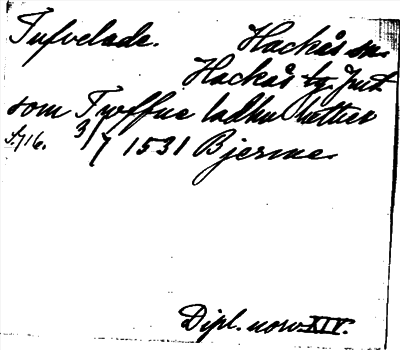 Tufvelada. Hackås sn.
Hackås tg. Jmt.
som Twffue ladhu hether
s. 716. 3/7 1531 Bjerme.
Dipl. norv. XIV.